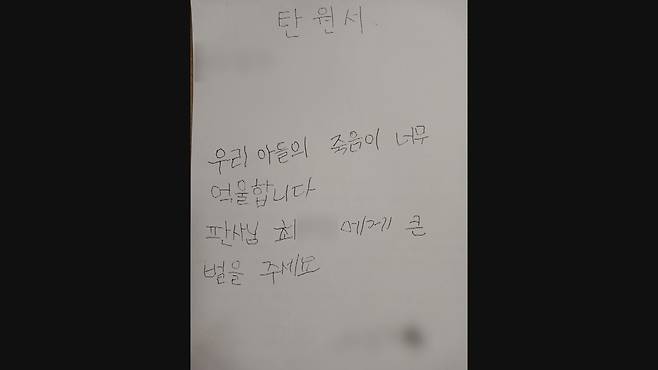 탄원서.
우리 아들의 죽음이 너무
억울합니다
판사님 최 에게 큰
벌을 주세요